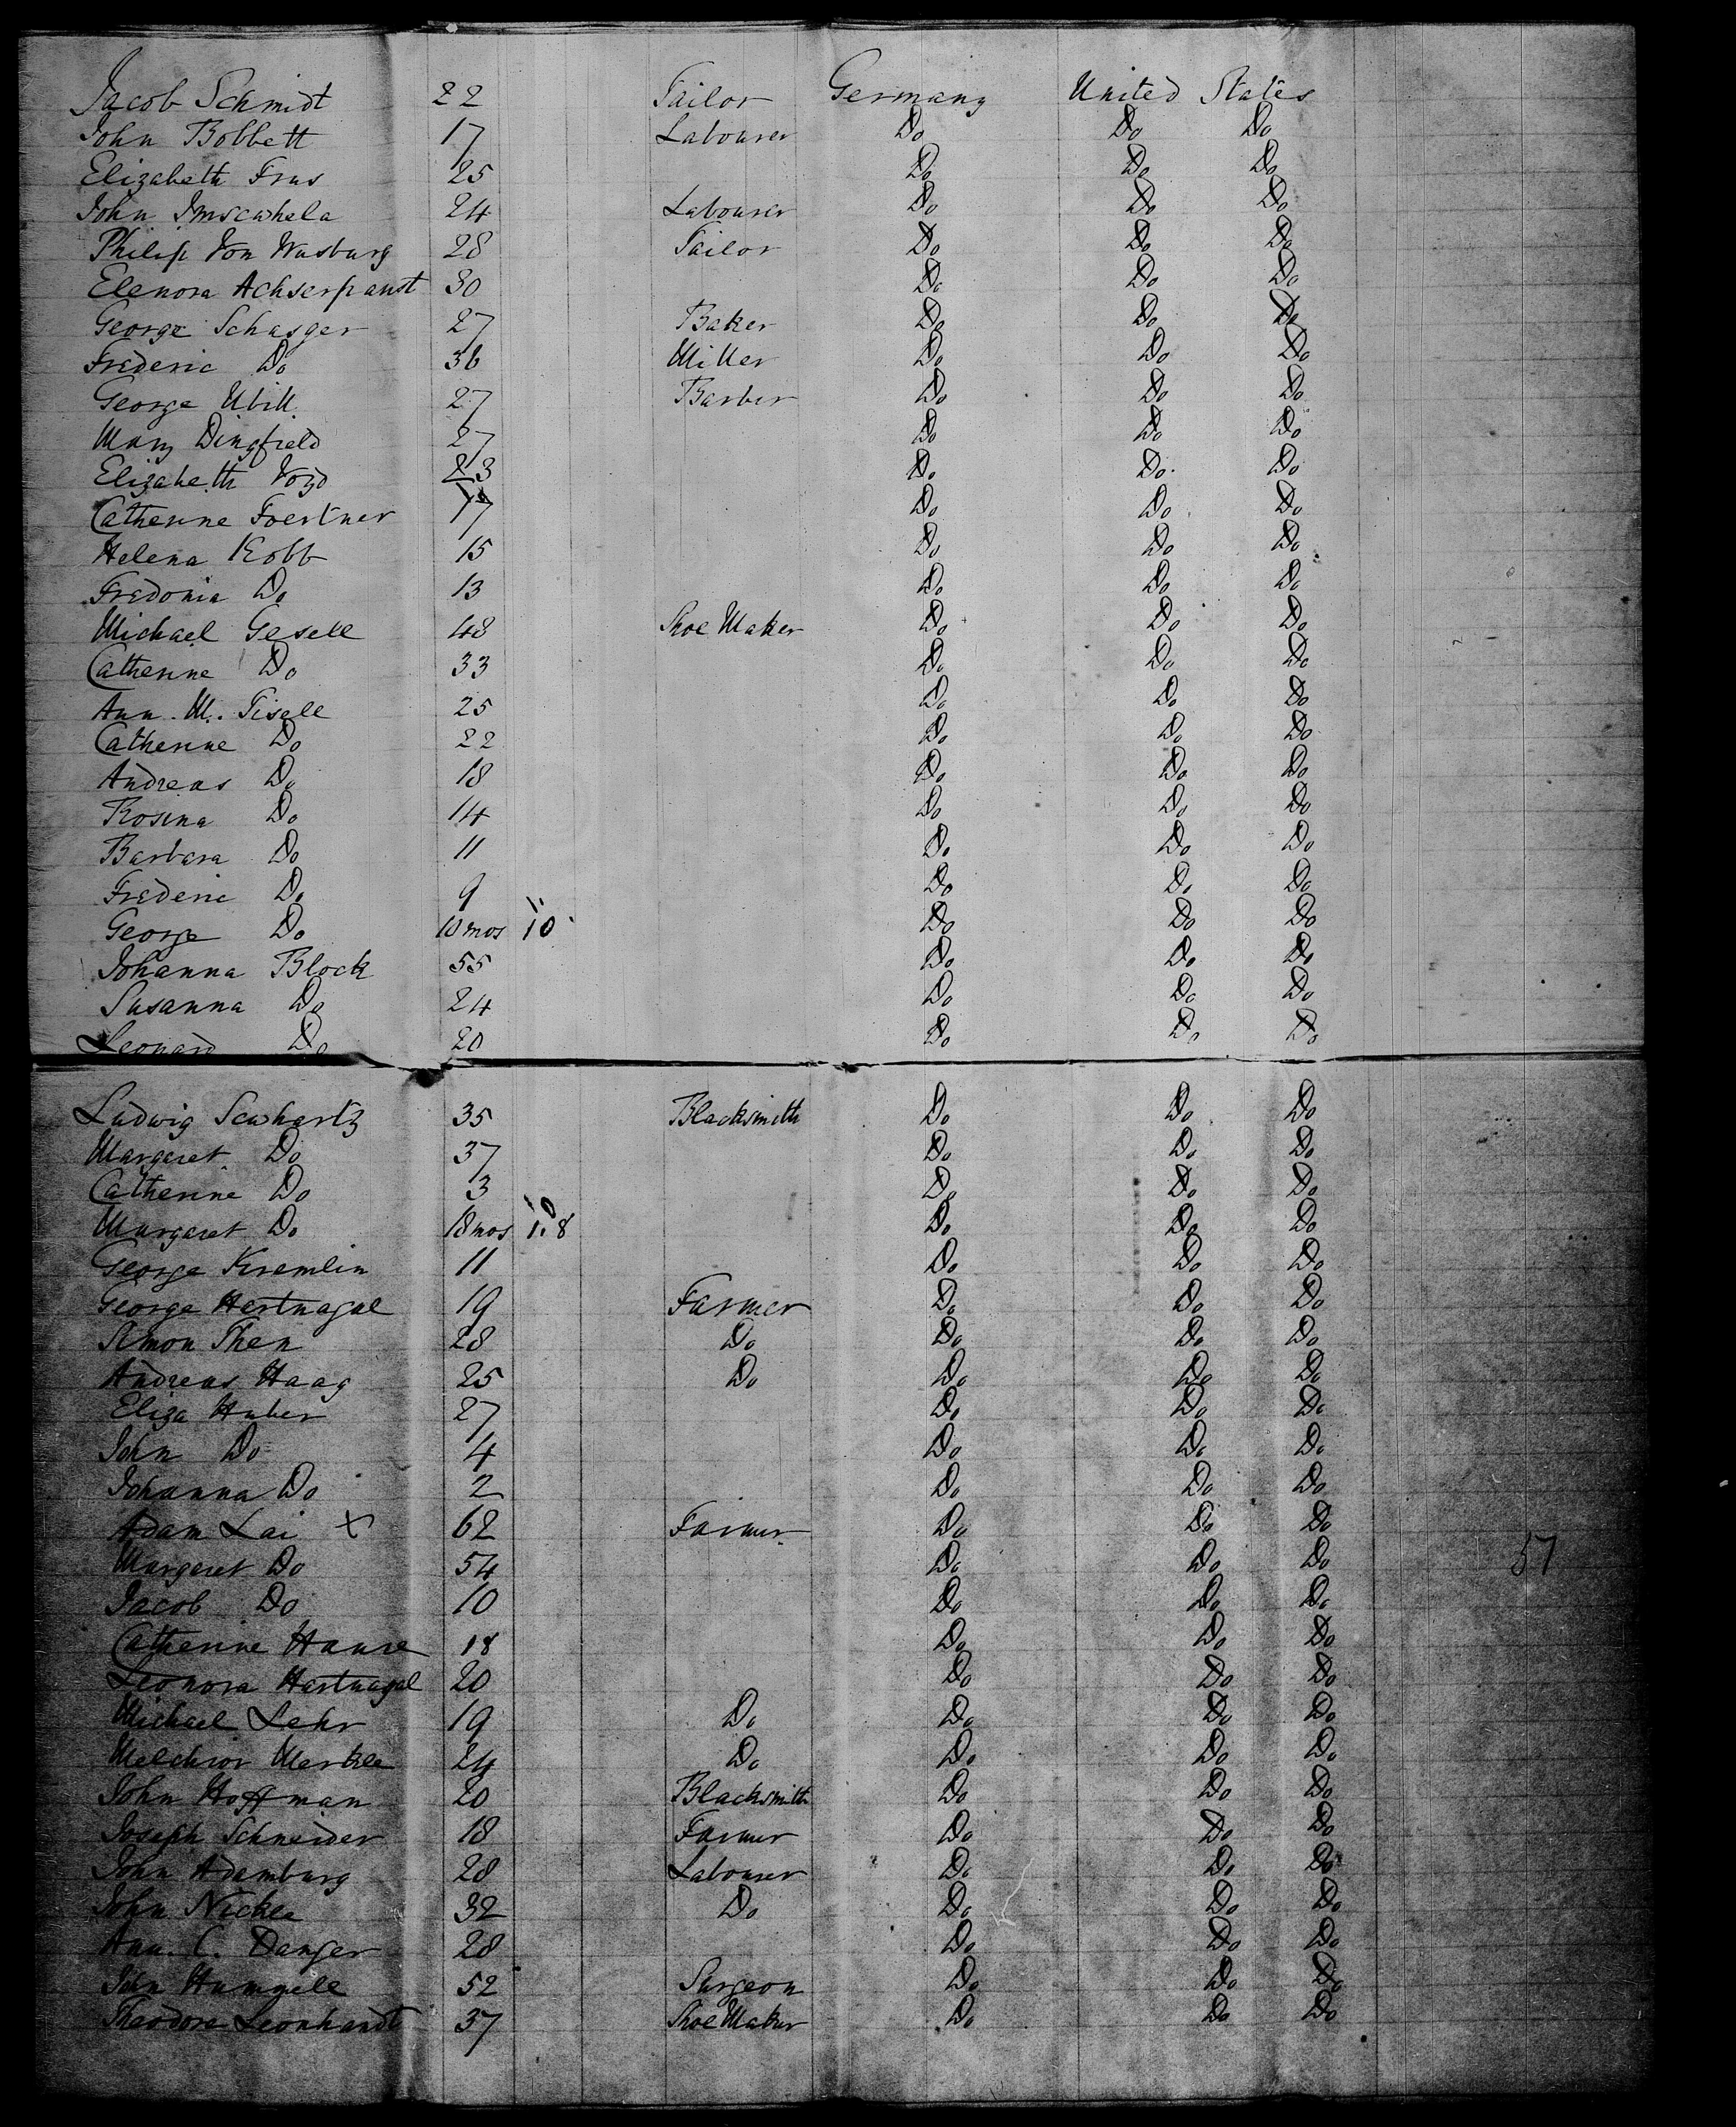 Jacob Schmidt 22 Tailor Germany United States
John Bobbett 17 Labourer Do Do Do
Elizabeth Frus 25 Do Do Do
John Imscwhela 24 Labourer Do Do Do
Philip Von Wasburg 28 Tailor Do Do Do
Elenora Achserpanst 30 Do Do Do
George Schasger 27 Baker Do Do Do
Frederic Do 36 Miller Do Do Do
George Ubill 27 Barber Do Do Do
Mary Dingfield 27 Do Do Do
Elizabeth Vozd 23 Do Do Do
Catherine Foertner 17 Do Do Do
Helena Robb 15 Do Do Do
Fredonia Do 13 Do Do Do
Michael Gesell 48 Shoe Maker Do Do Do
Catherine Do 33 Do Do Do
Ann. M. Tisell 25 Do Do Do
Catherine Do 22 Do Do Do
Andreas Do 18 Do Do Do
Rosina Do 14 Do Do Do
Barbara Do 11 Do Do Do
Frederic Do 9 Do Do Do
George Do 10 mos 10 Do Do Do
Johanna Block 55 Do Do Do
Susanna Do 24 Do Do Do
Leonard Do 20 Do Do Do
Ludwig Scwhartz 35 Blacksmith Do Do Do
Margaret Do 37 Do Do Do
Catherine Do 3 Do Do Do
Margaret Do 18 mos 1.8 Do Do Do
George Kremlin 11 Do Do Do
George Hertnagal 19 Farmer Do Do Do
Simon Then 28 Do Do Do Do
Andreas Haag 25 Do Do Do Do
Eliza Huber 27 Do Do Do
John Do 4 Do Do Do
Johanna Do 2 Do Do Do
Adam Lai x 62 Farmer Do Do Do
Margaret Do 54 Do Do Do 57
Jacob Do 10 Do Do Do
Catherine Hause 18 Do Do Do
Leonora Hertnagal 20 Do Do Do
Michael Lehr 19 Do Do Do Do
Melchior Merkle 24 Do Do Do Do
John Hoffman 20 Blacksmith Do Do Do
Joseph Schneider 18 Farmer Do Do Do
John Adamburg 28 Labourer Do Do Do
John Nickle 32 Do Do Do Do
Ann. C. Danger 28 Do Do Do
John 52 Surgeon Do Do Do
Theodore Leonhandt 37 Shoe Maker Do Do Do